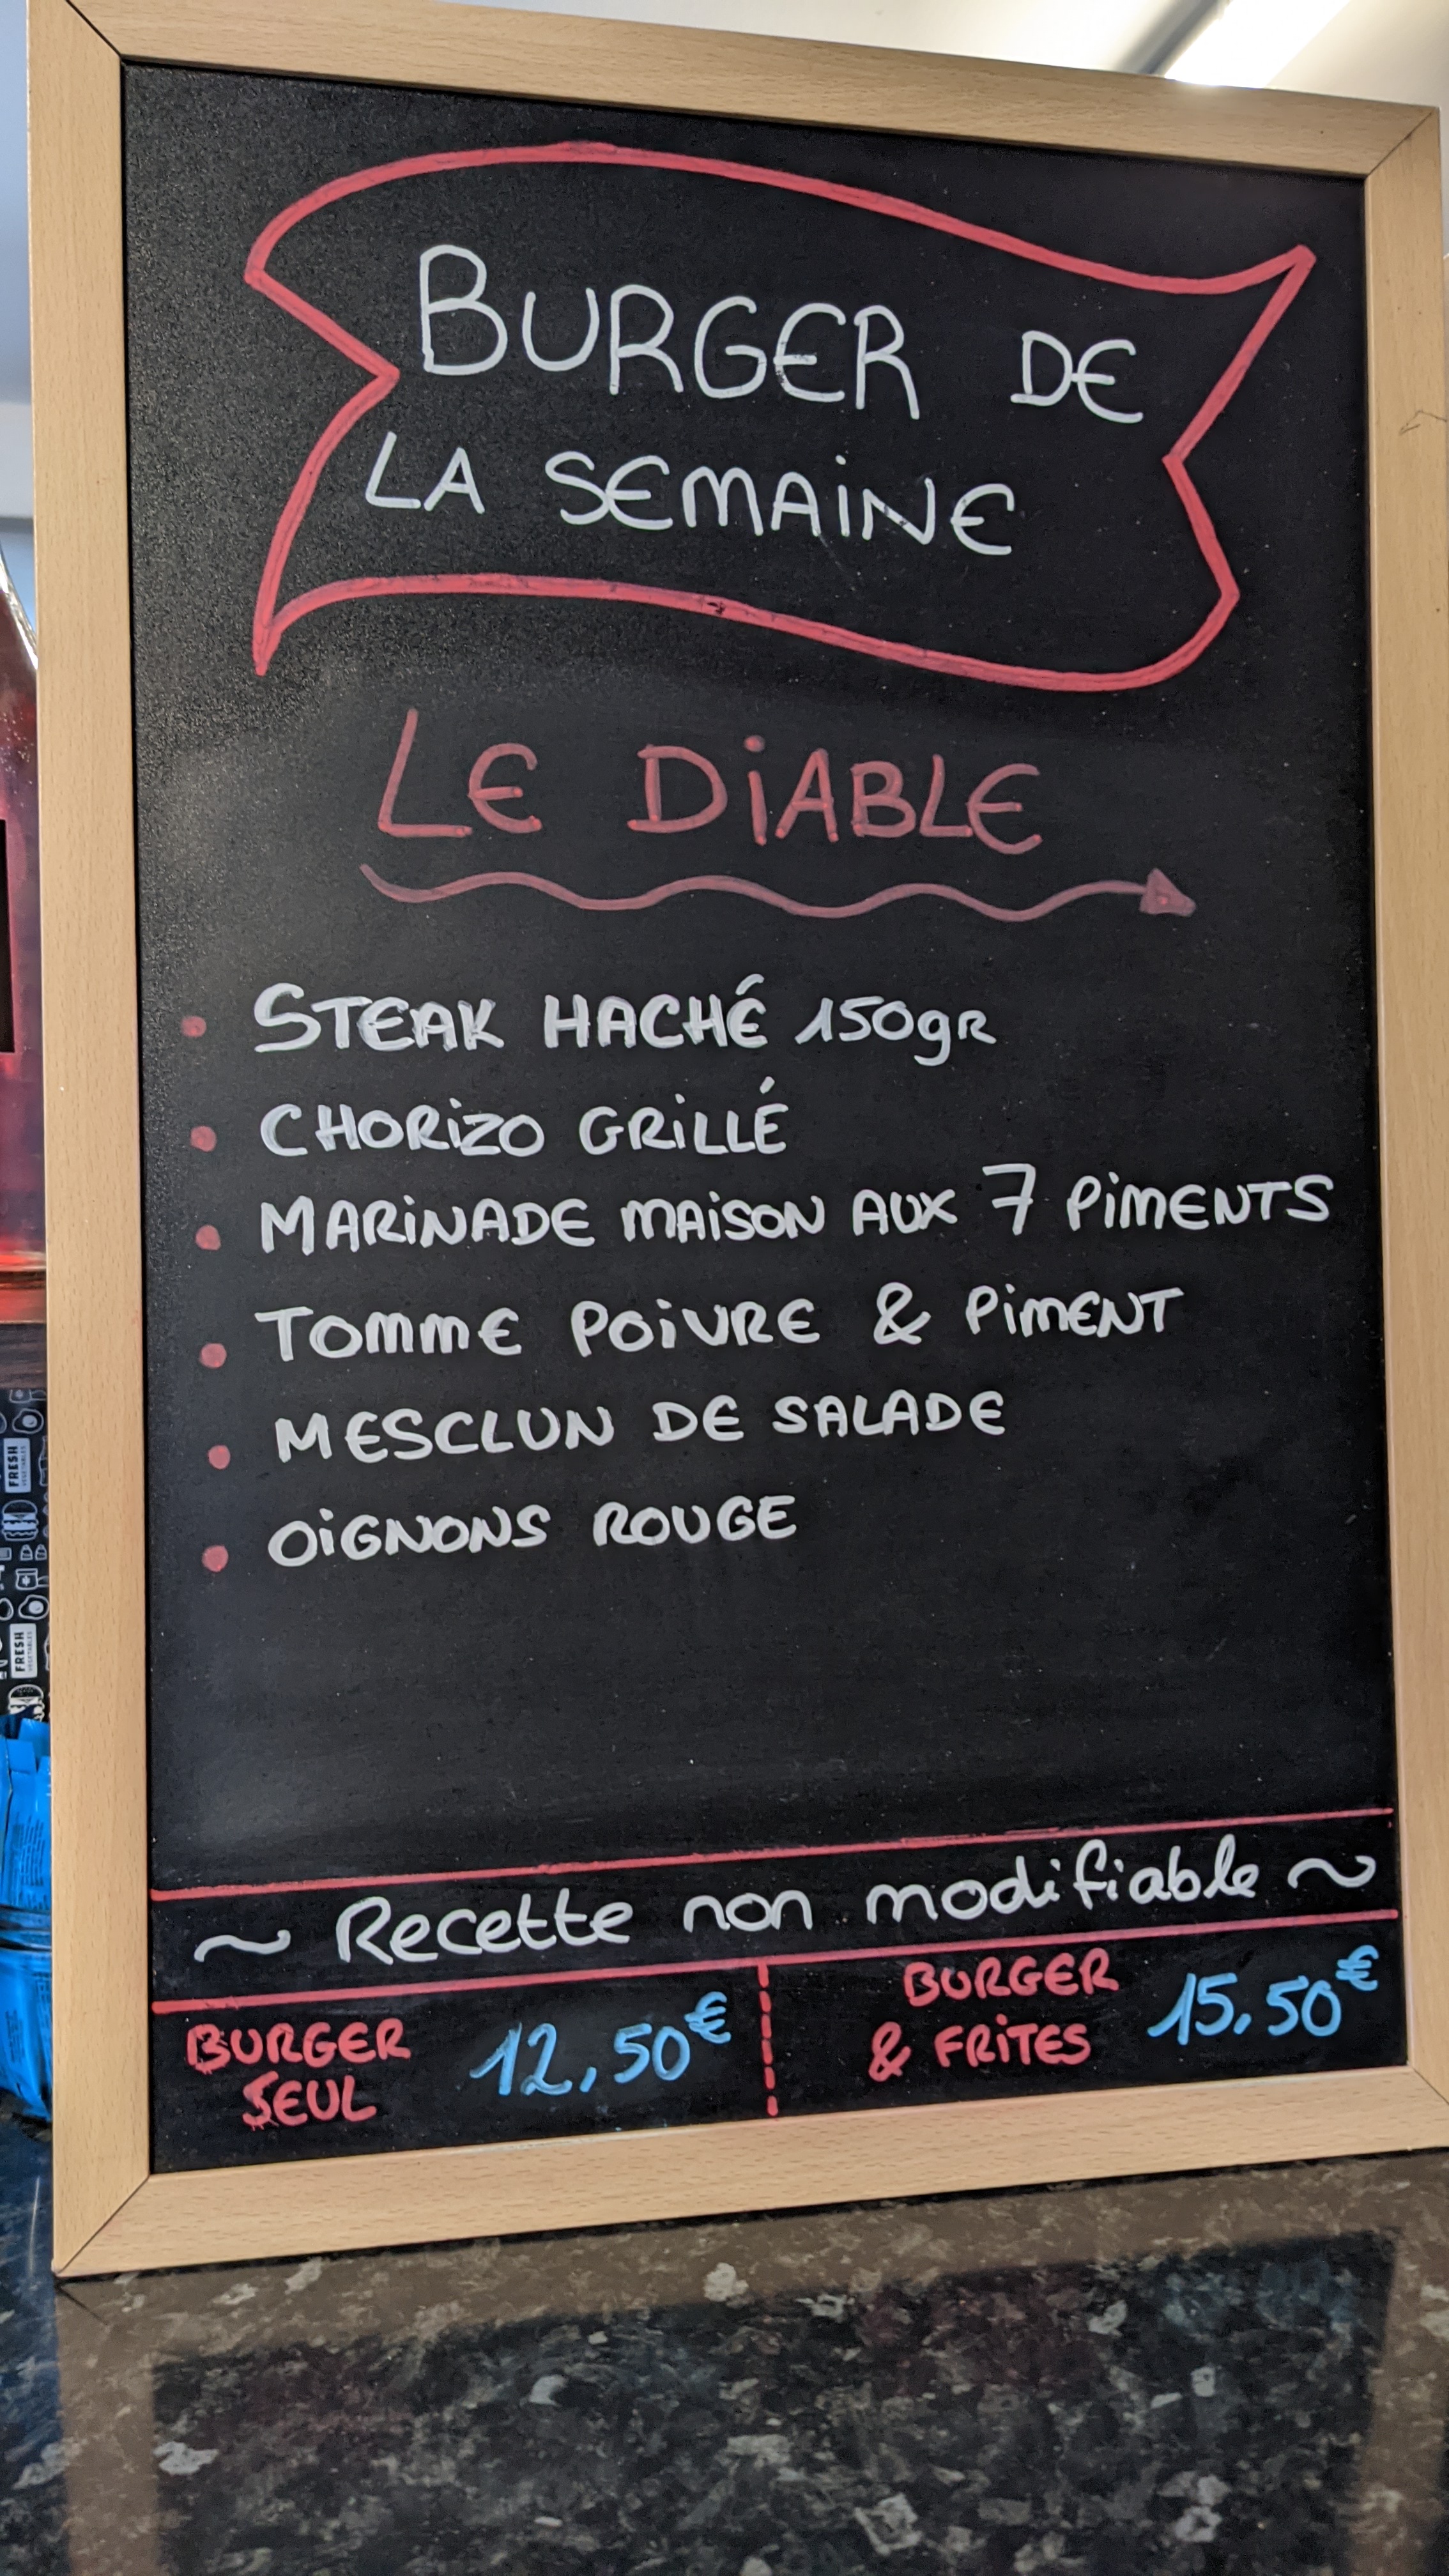 BURGER DE
LA SEMAINE
LE DIABLE
STEAK HACHÉ 150gR
CHORIZO GRILLÉ
MARINADE MAISON AUX 7 PIMENTS
TOMME POIVRE & PIMENT
MESCLUN DE SALADE
OIGNONS ROUGE
~ Recette non modifiable ~
BURGER
SEUL
12,50€
BURGER
& FRITES
15,50€
FRESH
VEGETABLES
FRESH
VEGETABLES